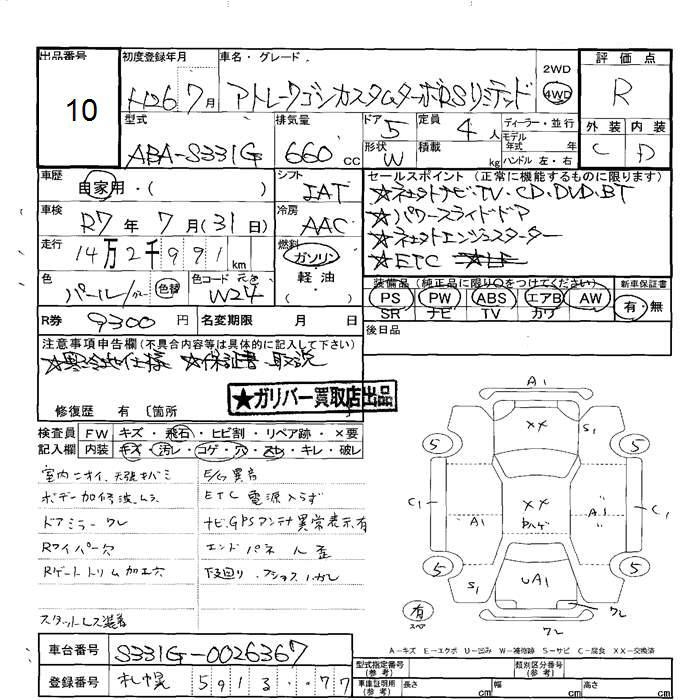 出品番号
10
初度登録年月
H26 7月
車名・グレード
アトレーワゴンカスタムターボRSリミテッド
2WD
4WD
評価点
R
外装 内装
C D
型式
ABA-S331G
排気量
660 cc
ドア
5
形状
W
定員
4 人
積載
kg
ディーラー・並行
モデル年式 年式
ハンドル 左・右
車歴
自家用・( )
シフト
IAT
車検
R7年 7月(31日)
冷房
AAC
走行
14万2千991 km
燃料
ガソリン
軽油
( )
色
パール/ 色替
色コード
W24
R券 9300 円
名変期限 月 日
セールスポイント(正常に機能するものに限ります)
★ネットナビ・TV・CD・DVD・BT
★パワースライドドア
★ネットエンジンスターター
★ETC
装備品(純正品に限り○をつけてください)
PS PW ABS エアB AW
SR ナビ TV カワ
新車保証書
有・無
後日品
注意事項申告欄(不具合内容等は具体的に記入して下さい)
★寒冷地仕様 ★保証書・取説
修復歴 有〔箇所
★ガリバー買取店出品
検査員 FW キズ・飛石・ヒビ割・リペア跡・×要
記入欄 内装 キズ・汚レ・コゲ・穴・スレ・キレ・破レ
室内ニオイ、天張キバミ
ボデー加修波、ムラ
ドアミラーワレ
Rワイパー欠
Rゲートトリム加工穴
スタットレス装着
E/G異音
ETC電源入らず
ナビ、GPSアンテナ異常表示有
エンドパネル歪
下廻り、
A1
××
S1
5
5
C1
A1
××
A1
C1
5
5
S1
UA1
ワレ
ワレ
有
スペア
A-キズ E-エクボ U-凹み W-補修跡 S-サビ C-腐食 XX-交換済
車台番号 S331G-0026367
登録番号 札幌 5913・・77
型式指定番号
(参考)
類別区分番号
(参考)
車庫証明用
(参考)
長さ cm 幅 cm 高さ cm